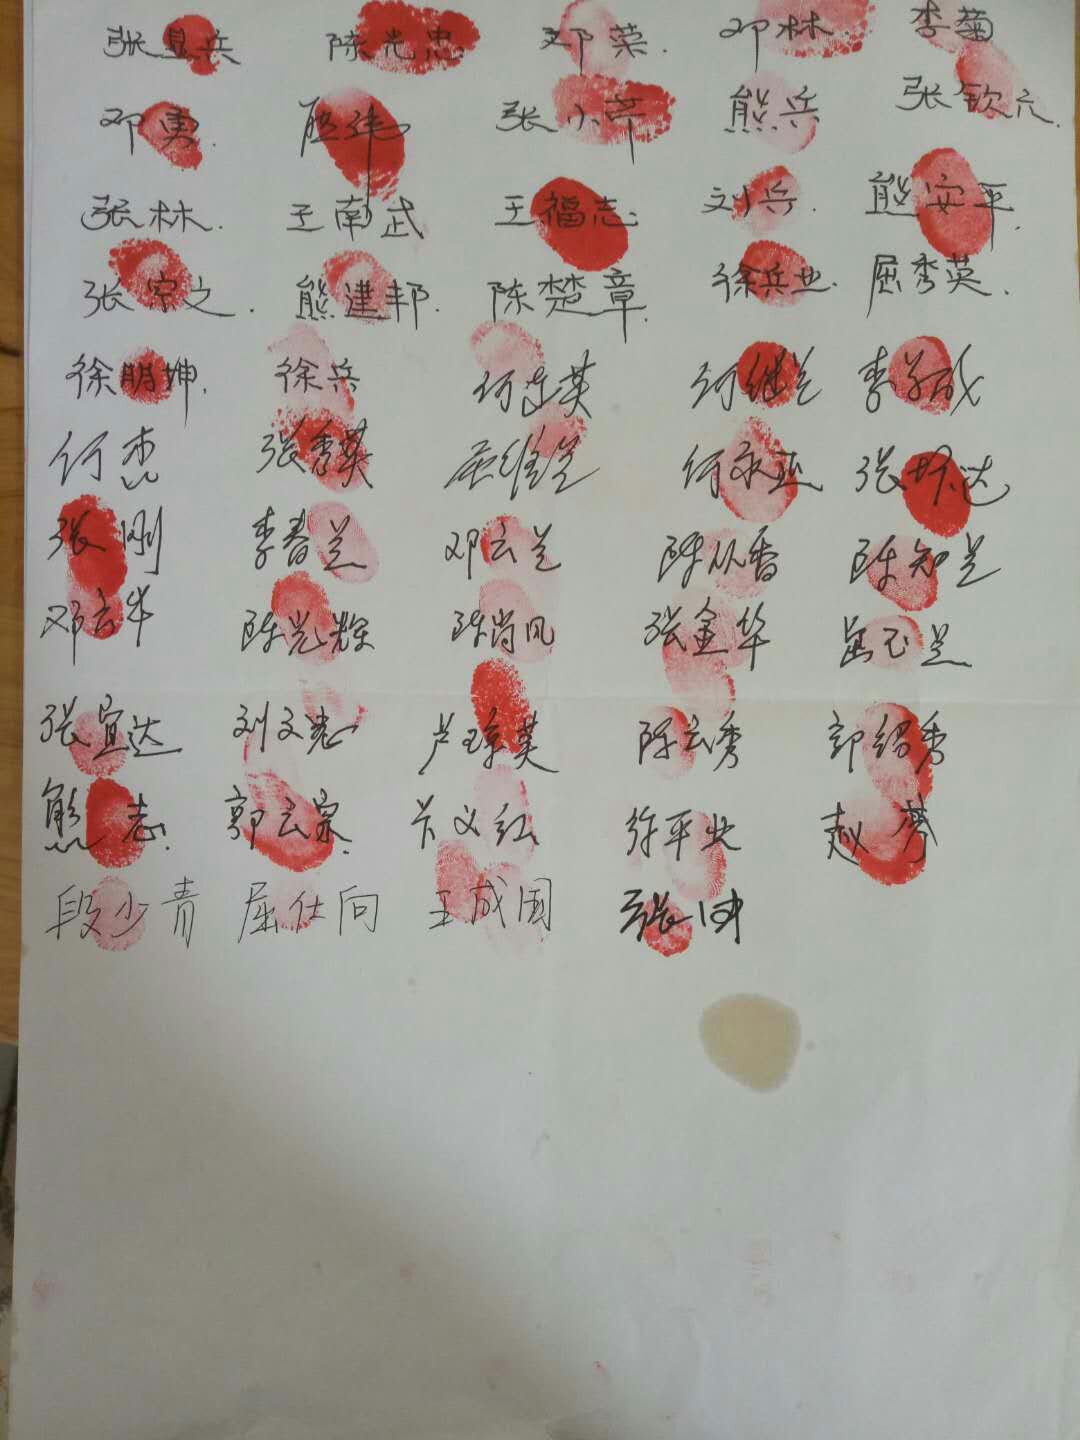 张显兵 陈光忠 邓荣. 邓林. 李菊
邓勇. 张小芹 熊兵 张钦六.
张林. 王南武 王福志 刘兵. 熊安平.
张宗文. 熊建邦. 陈楚章. 徐兵业. 屈秀英.
徐明坤. 徐兵 何连英 何继兰 李成
何杰 张秀英 何永 张达
张刚 李春兰 邓云兰 陈从香 陈知兰
邓云华 陈光辉 陈尚凤 张金华 玉兰
张宜达 刘文 卢琼英 陈云秀 郭绍秀
熊志. 郭云宗. 义红 徐平业 赵琴
段少青 屈仕向 王成国 张